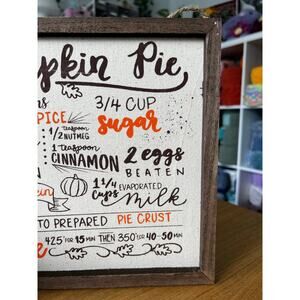 pkin Pie
3/4 CUP
SPICE
sugar
1/2 teaspoon
NUTMEG
1 teaspoon
CINNAMON
2 eggs
BEATEN
1 1/4 cups
EVAPORATED
Milk
TO PREPARED PIE CRUST
425° FOR 15 MIN THEN 350° FOR 40-50 MIN